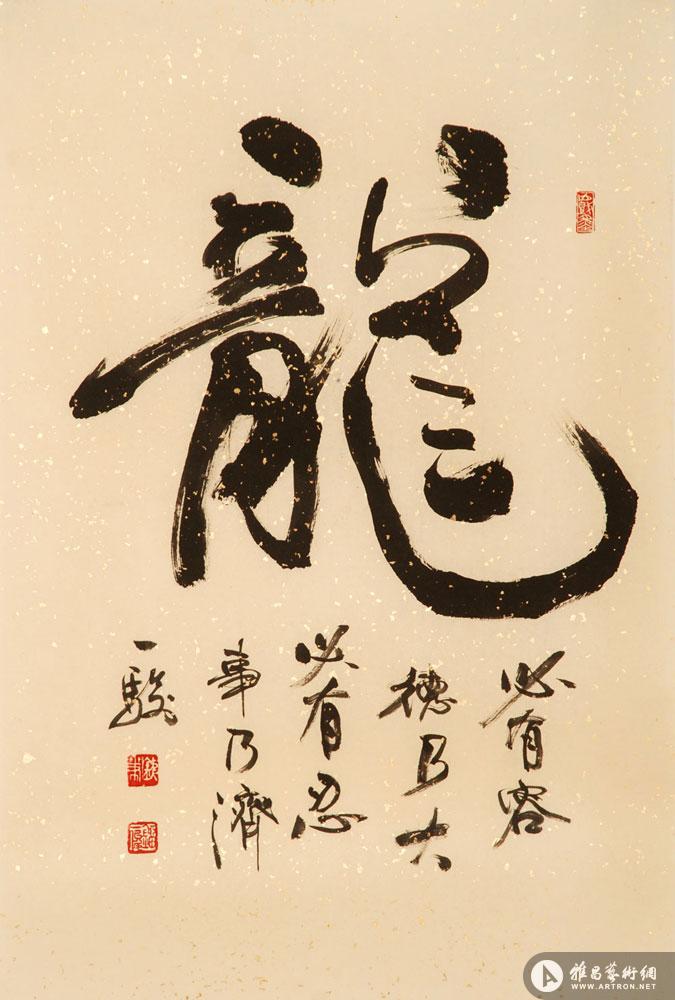 龍
必有容
德乃大
必有忍
事乃濟
一駿
雅昌藝術網
WWW.ARTRON.NET